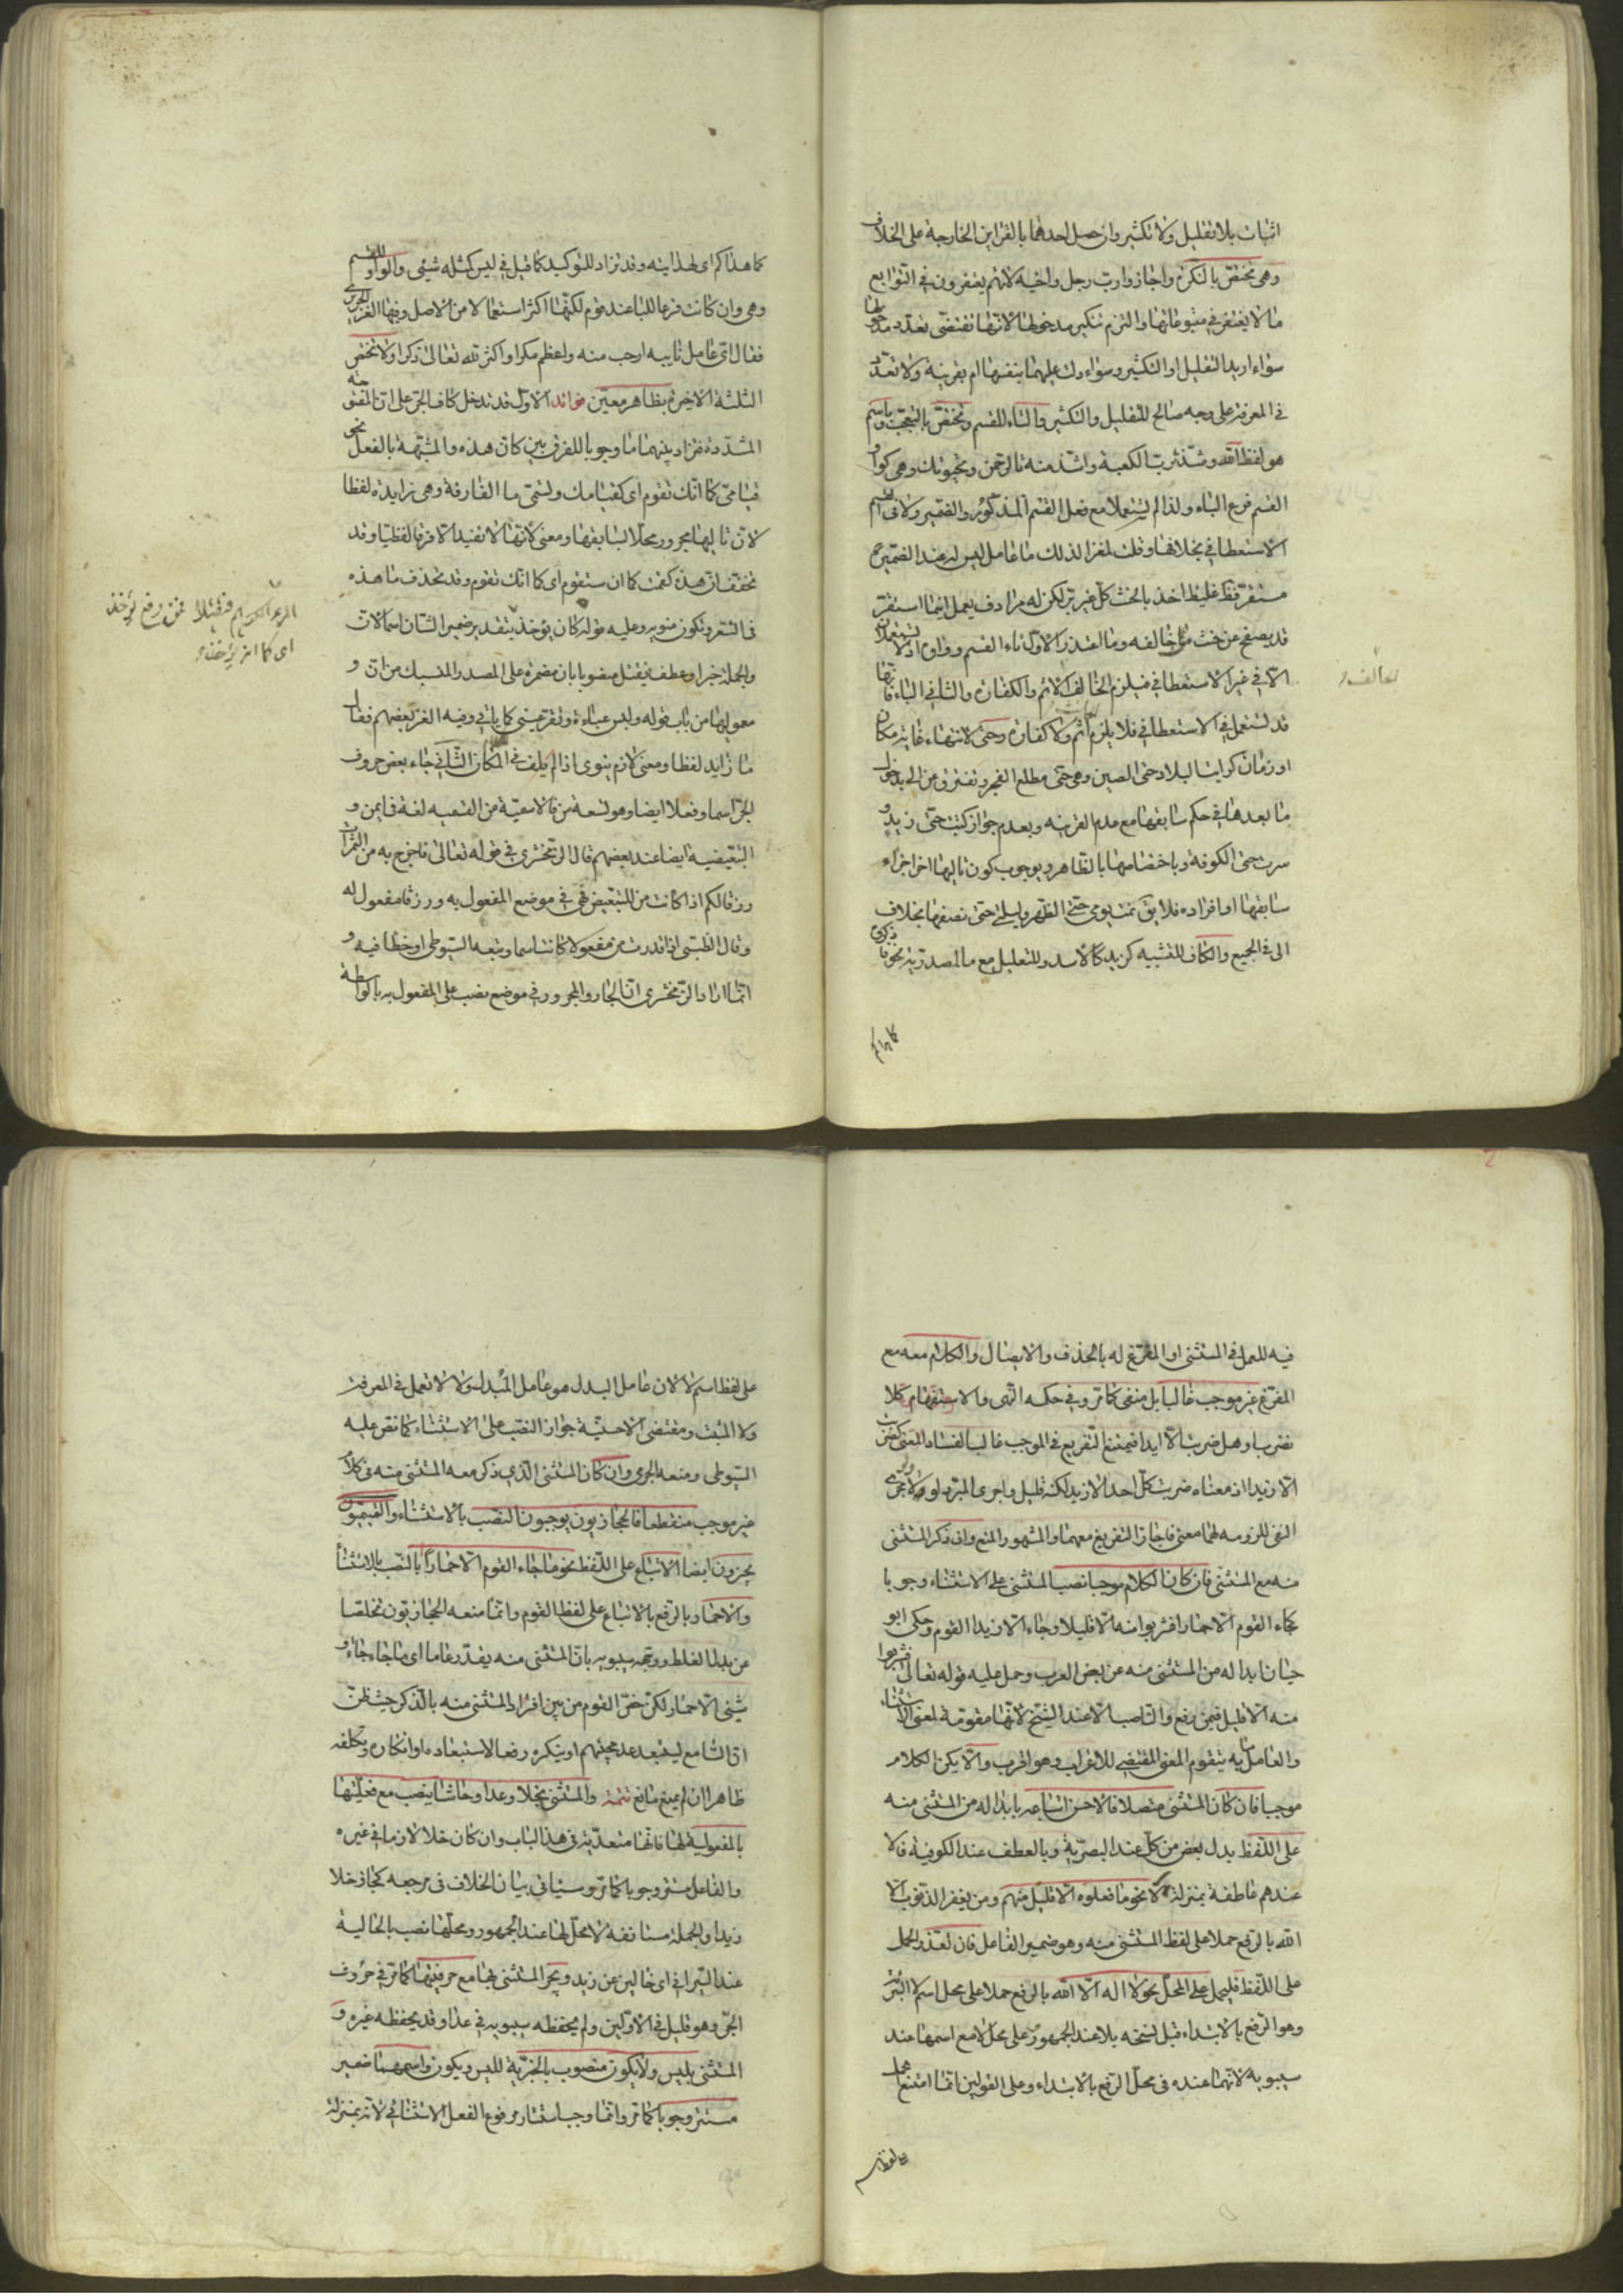 اثبات بلا تقليل ولا تكثير وان حصل احدهما بالقراين الخارجة على الخلاف
وهي تختص بالنكرة واجازوا رب رجل واخيه لانهم يغتفرون في التوابع
ما لا يغتفر في متبوعاتها والتزم تنكير مدخولها لانها تقتضى تعدد مدخولها
سواء اريد التقليل او التكثير وسواء دلت عليهما بنفسها ام بقرينة ولا تعدد
في المعرفة على وجه صالح للتقليل والتكثير والتاء للقسم وتختص بالتعجب وباسم
هو لفظ الله وشذ ترب الكعبة واشذ منه تالرحمن وتحيوتك وهي كواو
القسم فرع الباء ولذا لم يستعملا مع فعل القسم المذكور والضمير ولا في القسم
الاستعطافي بخلافها وقلت ملغزا لذلك ما عامل ليس له عند الضمير
مستقر فظ غليظ اخذ بالحنث كل غير بر لكن له مرادف يعمل اينما استقر
قد يصفح عن حنث من خالفه وما اعتذر الاول تاء القسم وواوه اذ لا تستعملان
الا في غير الاستعطافي فيلزم الخالف الاثم والكفارة والثاني الباء فانها
قد تستعمل في الاستعطافي فلا يلزم اثم ولا كفارة وحتى لانتهاء غاية مكان
او زمان كرايت البلاد حتى الصين وهي حتى مطلع الفجر وتفترق عن الى بدخول
ما بعدها في حكم سابقها مع عدم القرينة وبعدم جواز كتبت حتى زيد و
سرت حتى الكوفة وباختصامها بالظاهر وبوجوب كون تاليها اخر اجزاء
سابقها او افراده فلا يق نمت يومي حتى الظهر وليلتي حتى نصفها بخلاف
الى في الجميع والكاف للتشبيه كزيد كالاسد وللتعليل مع ما المصدرية نحو فاذكروه
كما هداكم
كما هداكم اى لهدايته وقد تزاد للتوكيد كما قيل في ليس كمثله شيئى والواو للقسم
وهي وان كانت فرعا للباء عند قوم لكنها اكثر استعمالا من الاصل وفيها الغز الحريرى
فقال اى عامل نايبه ارحب منه واعظم مكرا واكثر لله تعالى ذكرا ولا تختص
الثلثة الاخيرة بظاهر معين فوائد الاول قد تدخل كاف الجر على ان المفتوحة
المشددة فتزاد بينهما ما وجوبا للفرق بين كان هذه والمشبهة بالفعل نحو
قيامى كما انك تقوم اى كقيامك وتسمى ما الفارقة وهي زايدة لفظا
لان تاليها مجرور محلا لسابقها ومعنى لانها لا تفيد الا فرقا لفظيا وقد
تخفف ان هذه كقمت كما ان ستقوم اى كما انك تقوم وقد تحذف ما هذه
فى الشعر وتكون منويه وعليه قوله كان يؤخذ بتقدير ضمير الشان اسما لان
والجملة خبرا وعطف فيقتل منصوبا بان مضمرة على المصدر المنسبك من ان و
معموليها من باب قوله ولبس عباءة وتقر عينى كما ياتي وفيه الغز بعضهم فقال
ما زايد لفظا ومعنى لازم ينوى اذا لم يلف في المكان الثاني جاء بعض حروف
الجر اسما وفعلا ايضا وهو تسعة
التبعيضية ايضا عند بعضهم قال الزمخشرى في قوله تعالى فاخرج به من الثمرات
رزقا لكم اذا كانت من للتبعيض فهي في موضع المفعول به ورزقا مفعول له
وقال الطيبى اذا قدرت من مفعولا كانت اسما وتبعه السيوطى واخطا فيه و
انما اراد الزمخشرى ان الجار والمجرور في موضع نصب على المفعول به بالواسطة
اى كما انه يؤخذ
فيه للعمل في المستثنى او المفرغ له بالحذف والايصال والكلام معه مع
المفرغ غير موجب غالبا بل منفى كما مر وفي حكمه النهى والاستفهام كلا
تضرب او هل ضربت الا زيدا فيمتنع التفريغ في الموجب غالبا لفساد المعنى كضربت
الا زيدا اذ معناه ضربت كل احد الا زيد لكنه قليل واجرى المبرد لو ولولا مجرى
النفى للزومه لهما معنى فاجاز التفريغ معهما والمشهور المنع وان ذكر المستثنى
منه مع المستثنى فان كان الكلام موجبا نصب المستثنى على الاستثناء وجوبا
كجاء القوم الا حمارا فشربوا منه الا قليلا وجاء الا زيدا القوم وحكى ابو
حيان ابداله من المستثنى منه عن بعض العرب وحمل عليه قوله تعالى فشربوا
منه الا قليل فيمن رفع والناصب الا عند الشيخ لانها مقومة لمعنى الاستثناء
والعامل ما به يتقوم المعنى المقتضى للاعراب وهو اقرب والا يكن الكلام
موجبا فان كان المستثنى متصلا فالاحسن اتباعه بابداله من المستثنى منه
على اللفظ بدل بعض من كل عند البصرية وبالعطف عند الكوفية فالا
عندهم عاطفة بمنزلة لا نحو ما فعلوه الا قليل منهم ومن يغفر الذنوب الا
الله بالرفع حملا على لفظ المستثنى منه وهو ضمير الفاعل فان تعذر الحمل
على اللفظ فليحمل على المحل نحو لا اله الا الله بالرفع حملا على محل اسم لا التبرئة
وهو الرفع بالابتداء قبل نسخه بلا عند الجمهور وعلى محل لا مع اسمها عند
سيبويه لانهما عنده في محل الرفع بالابتداء وعلى القولين انما امتنع الحمل
على لفظ اسم
على لفظ اسم لا لان عامل البدل هو عامل المبدل ولا لا تعمل في المعرفة
ولا المثبت ومقتضى الاحسنية جواز النصب على الاستثناء كما نص عليه
السيوطى ومنعه الجرمى وان كان المستثنى الذى ذكر معه المستثنى منه في كلام
غير موجب منقطعا فالحجازيون يوجبون النصب بالاستثناء والتميميون
يجوزون ايضا الاتباع على اللفظ نحو ما جاء القوم الا حمارا بالنصب بالاستثناء
والا حمار بالرفع بالاتباع على لفظ القوم وانما منعه الحجازيون تخلصا
عن بدل الغلط ووجهه سيبويه بان المستثنى منه يقدر عاما اى ما جاء جاء و
شيئى الا حمار لكن خص القوم من بين افراد المستثنى منه بالذكر حيث ظن
ان السامع يستبعد عدم مجيئهم او ينكره رفعا لاستبعاده او انكاره وتكلفه
ظاهر ان لم يمنع مانع تتمة والمستثنى بخلا وعدا وحاشا ينصب مع فعليتها
بالمفعولية لها فانها متعدية في هذا الباب وان كان خلا لازما في غيره
والفاعل مستتر وجوبا كما مر وسياتى بيان الخلاف في مرجعه كجاؤا خلا
زيدا والجملة مستانفة لا محل لها عند الجمهور ومحلها نصب بالحالية
عند السيرافي اى خالين عن زيد ويجر المستثنى بها مع حرفيتها كما مر في حروف
الجر وهو قليل في الاولين ولم يحفظه سيبويه في عدا وقد يحفظه غيره و
المستثنى بليس ولا يكون منصوب بالخبرية لليس ويكون واسمهما ضمير
مستتر وجوبا كما مر وانما وجب استتار مرفوع الفعل الاستثنائي لانه بمنزلة